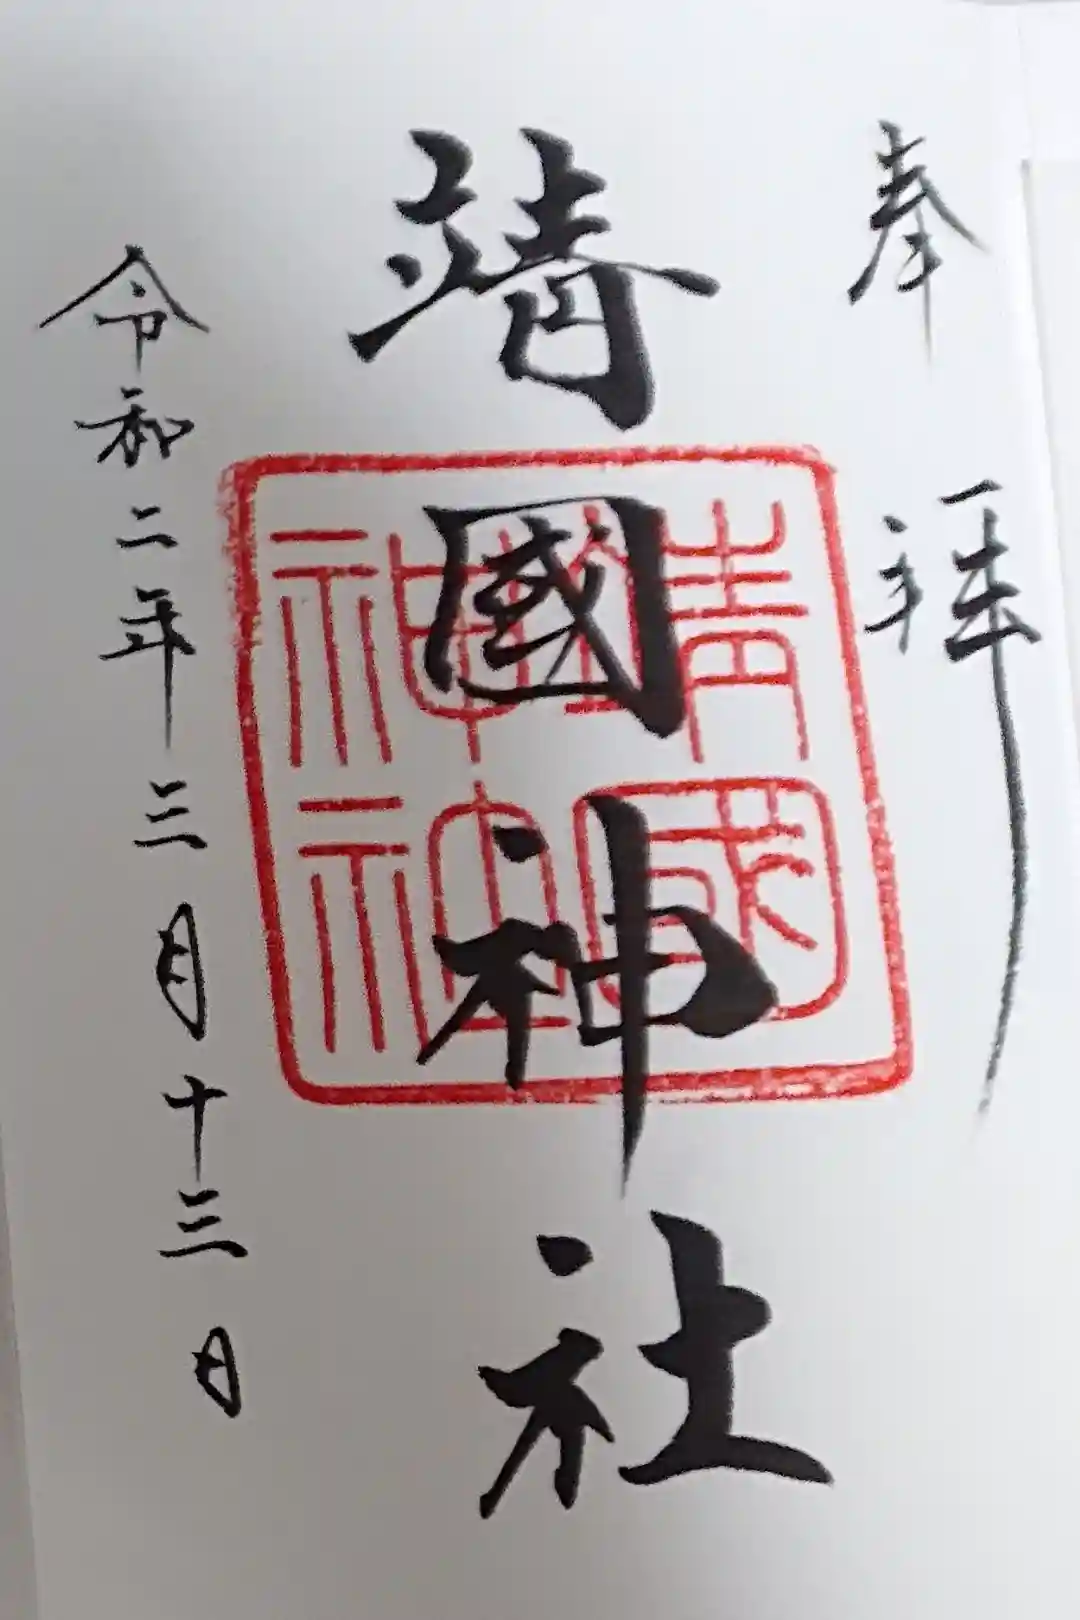 奉拝
靖國神社
靖國神社
令和二年三月十三日